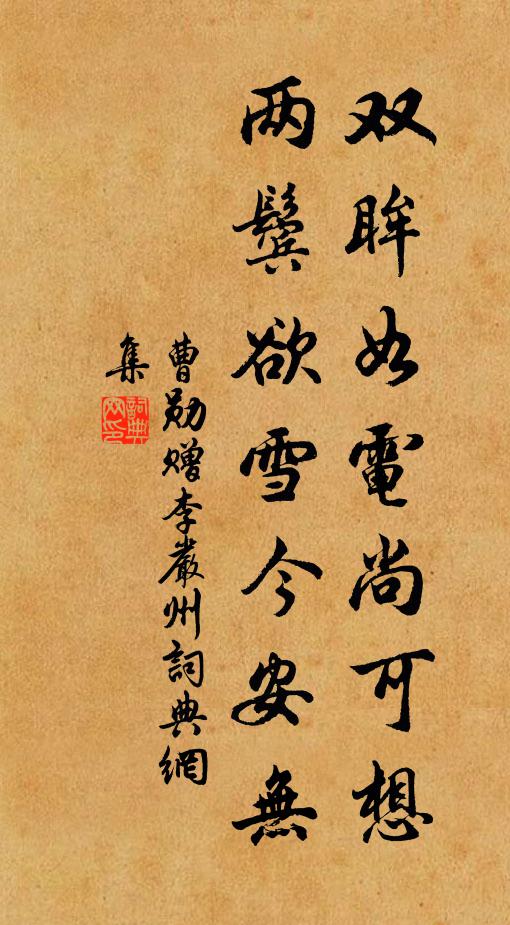 双眸如電尚可想
两鬓欲雪今安無
曹勛赠李嚴州詞典網
集
詞典
网印